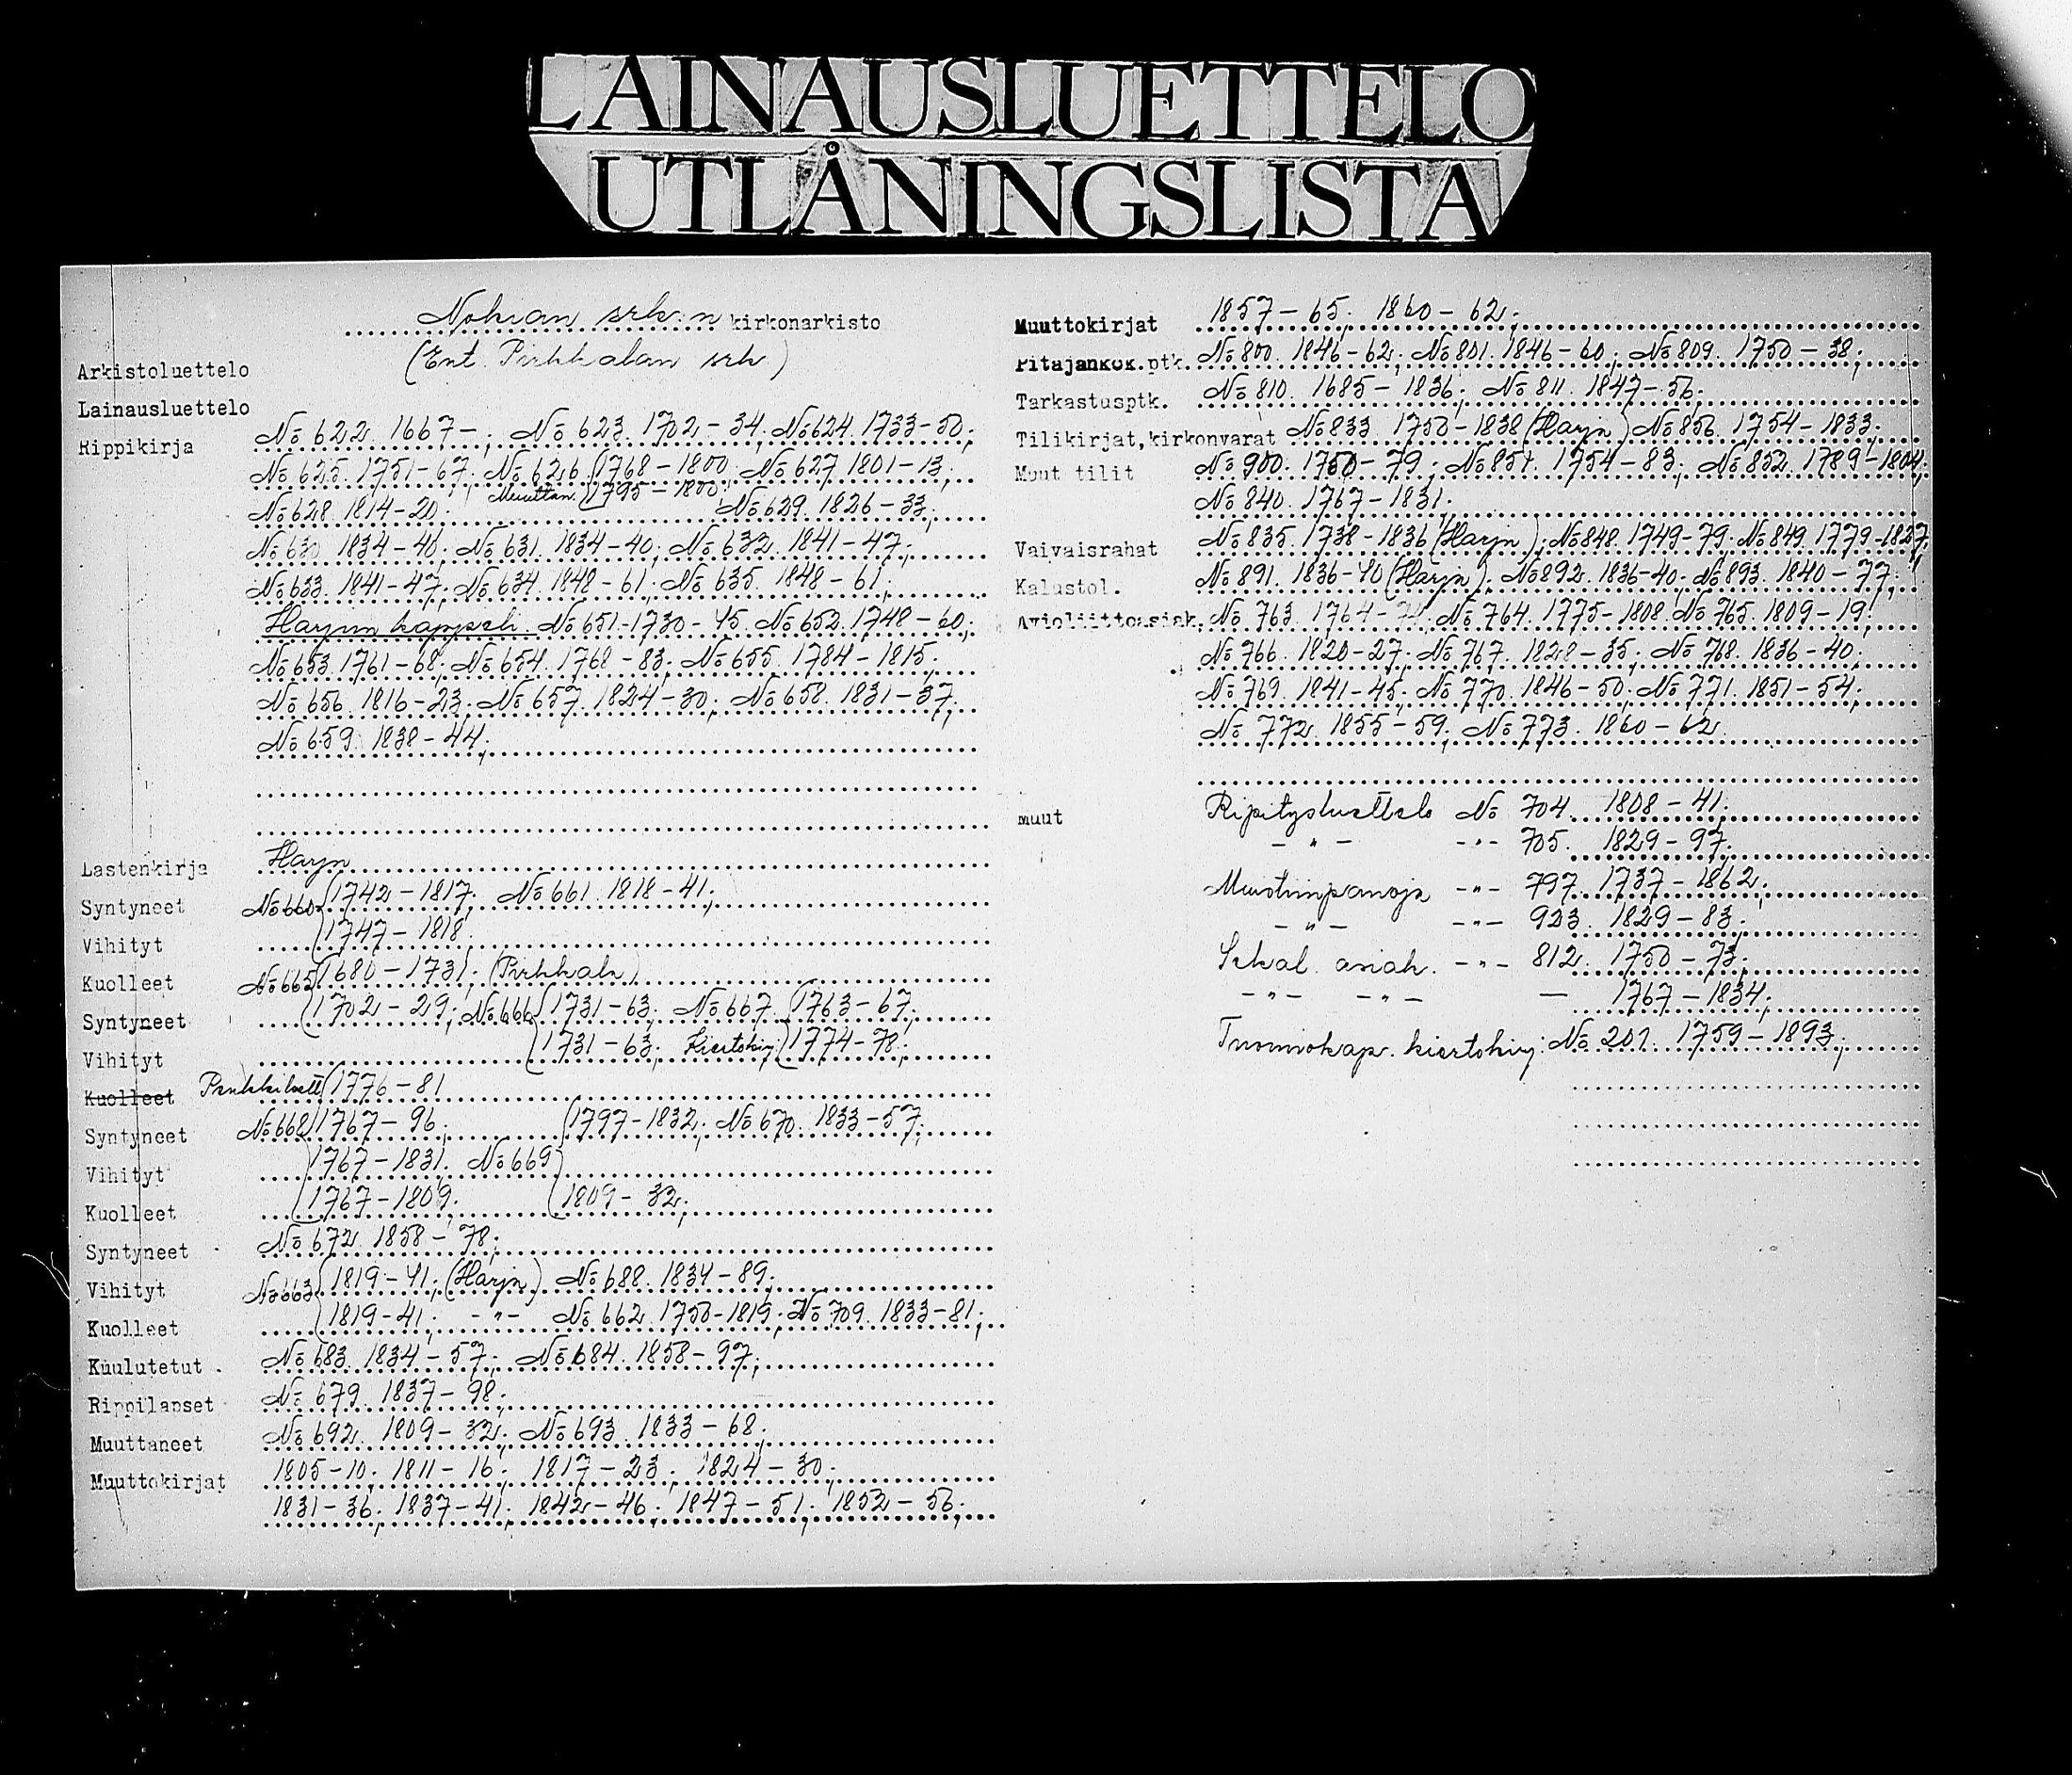 LAINAUSLUETTELO
UTLÅNINGSLISTA
Nokian srk:n kirkonarkisto
(Ent. Pirkkalan srk)
Arkistoluettelo
Lainausluettelo
Rippikirja No 622. 1667-; No 623. 1702-34; No 624. 1733-50;
No 625. 1751-67; No 626 1768-1800; No 627 1801-13;
Muuttan. 1795-1800;
No 628. 1814-20; No 629. 1826-33;
No 630. 1834-40; No 631. 1834-40; No 632. 1841-47;
No 633. 1841-47; No 634. 1848-61; No 635. 1848-61;
Harjun kappeli. No 651.-1730-45. No 652. 1748-60;
No 653. 1761-68; No 654. 1768-83; No 655. 1784-1815;
No 656. 1816-23; No 657. 1824-30; No 658. 1831-37;
No 659. 1838-44;
Lastenkirja Harjn
Syntyneet No 660 1742-1817; No 661. 1818-41;
Vihityt 1747-1818.
Kuolleet No 665 1680-1731; (Pirkkala)
Syntyneet 1702-29; No 666 1731-63; No 667. 1763-67;
Vihityt 1731-63; Kiertokirj. 1774-78;
Kuolleet 1776-81
Syntyneet No 668 1767-96; 1797-1832; No 670. 1833-57;
Vihityt 1767-1831. No 669
Kuolleet 1767-1809; 1809-32;
Syntyneet No 672. 1858-78;
Vihityt No 663 1819-41; (Harjn) No 688. 1834-89;
Kuolleet 1819-41; -"- No 662. 1750-1819; No 709. 1833-81;
Kuulutetut No 683. 1834-57; No 684. 1858-97;
Rippilapset No 679. 1837-98;
Muuttaneet No 692. 1809-32; No 693. 1833-68;
Muuttokirjat 1805-10; 1811-16; 1817-23; 1824-30;
1831-36; 1837-41; 1842-46; 1847-51; 1852-56;
Muuttokirjat 1857-65; 1860-62;
Pitäjänkok.ptk. No 800. 1846-62; No 801. 1846-60; No 809. 1750-38;
Tarkastusptk. No 810. 1685-1836; No 811. 1847-56;
Tilikirjat,kirkonvarat No 833. 1750-1838 (Harjn) No 850. 1754-1833;
Muut tilit No 900. 1750-79; No 851. 1754-83; No 852. 1789-1804;
No 840. 1767-1831;
Vaivaisrahat No 835. 1738-1836 (Harjn); No 848. 1749-79; No 849. 1779-1827;
Kalustol. No 891. 1836-40 (Harjn); No 892. 1836-40; No 893. 1840-77;
Avioliittoasiak. No 763. 1764-74; No 764. 1775-1808. No 765. 1809-19;
No 766. 1820-27; No 767. 1828-35; No 768. 1836-40;
No 769. 1841-45; No 770. 1846-50; No 771. 1851-54;
No 772. 1855-59; No 773. 1860-62
muut Ripitysluettelo No 704. 1808-41;
-"- -"- 705. 1829-97;
Muistiinpanoja -"- 797. 1737-1862;
-"- -"- 923. 1829-83;
Srkal. asiak. -"- 812. 1750-73;
-"- -"- — 1767-1834;
Tuomiokap. kiertokirj. No 201. 1759-1893;